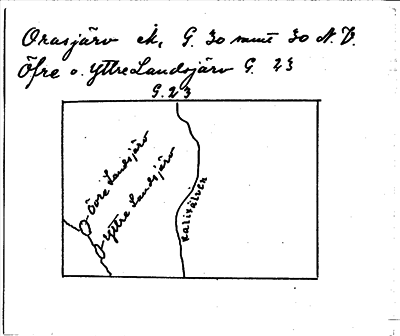 Orasjärv ek, G. 30 samt 30 N.V.
Öfre o. Yttre Landsjärv G. 23
G. 23
Övre Landsjärv
Yttre Landsjärv
Kalixälven